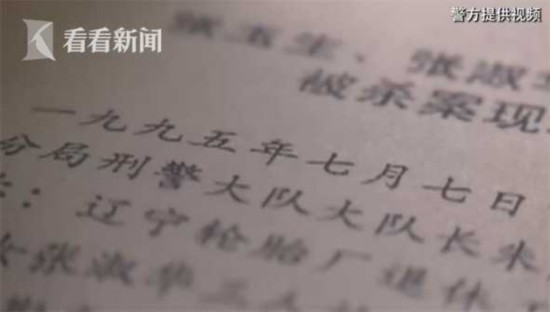 警方提供视频
看看新闻
张玉生、张淑
被杀案现
一九九五年七月七日
分局刑警大队大队长朱
：辽宁轮胎厂退休
女张淑华三人